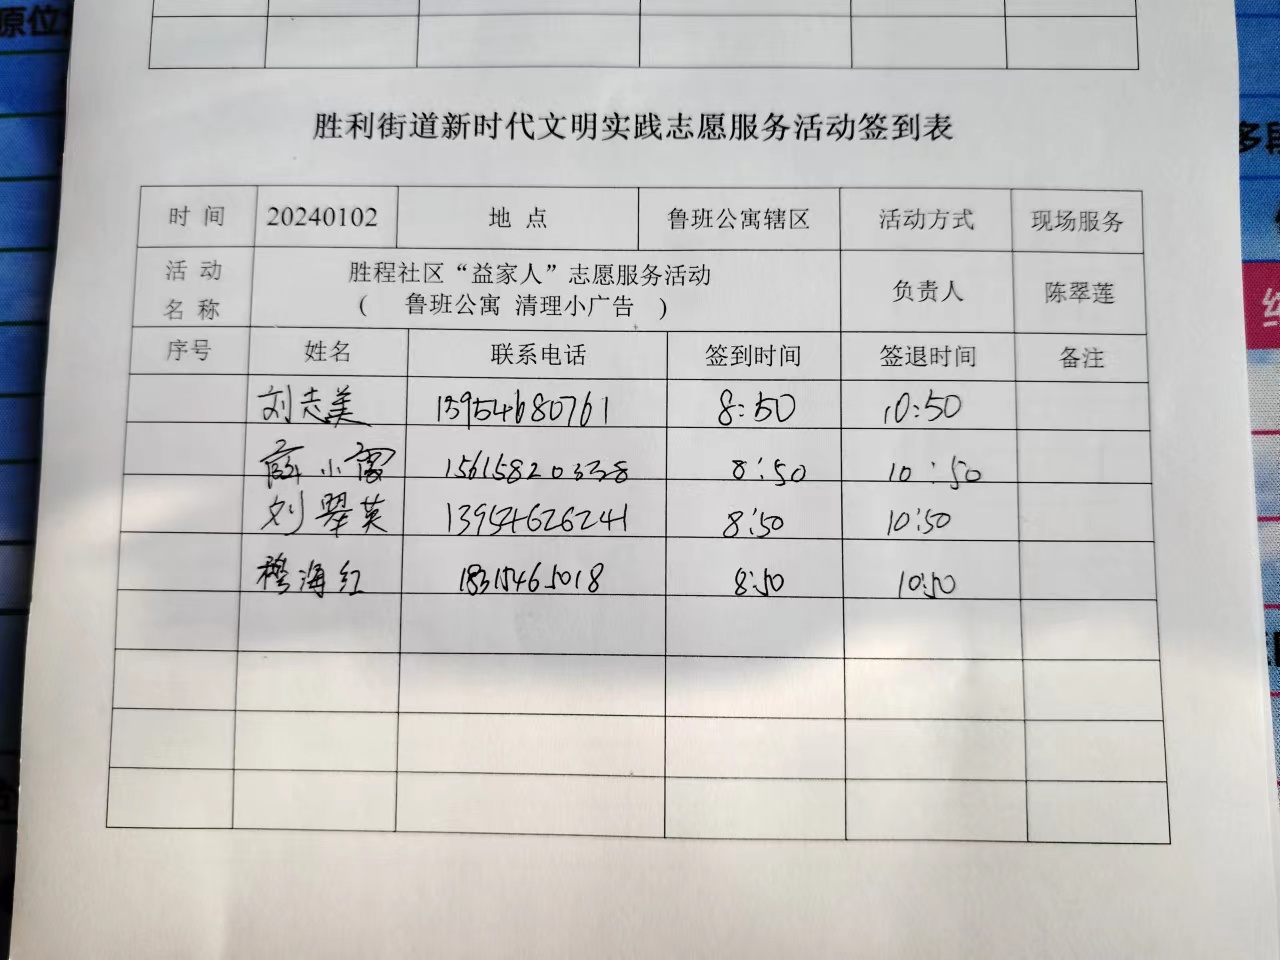 原位
胜利街道新时代文明实践志愿服务活动签到表
时 间 20240102 地 点 鲁班公寓辖区 活动方式 现场服务
活 动 名 称 胜程社区“益家人”志愿服务活动 负责人 陈翠莲
( 鲁班公寓 清理小广告 )
序号 姓名 联系电话 签到时间 签退时间 备注
刘志美 13954680761 8:50 10:50
薛小霞 15615820338 8:50 10:50
刘翠英 13954626241 8:50 10:50
穆海红 18315465018 8:50 10:50